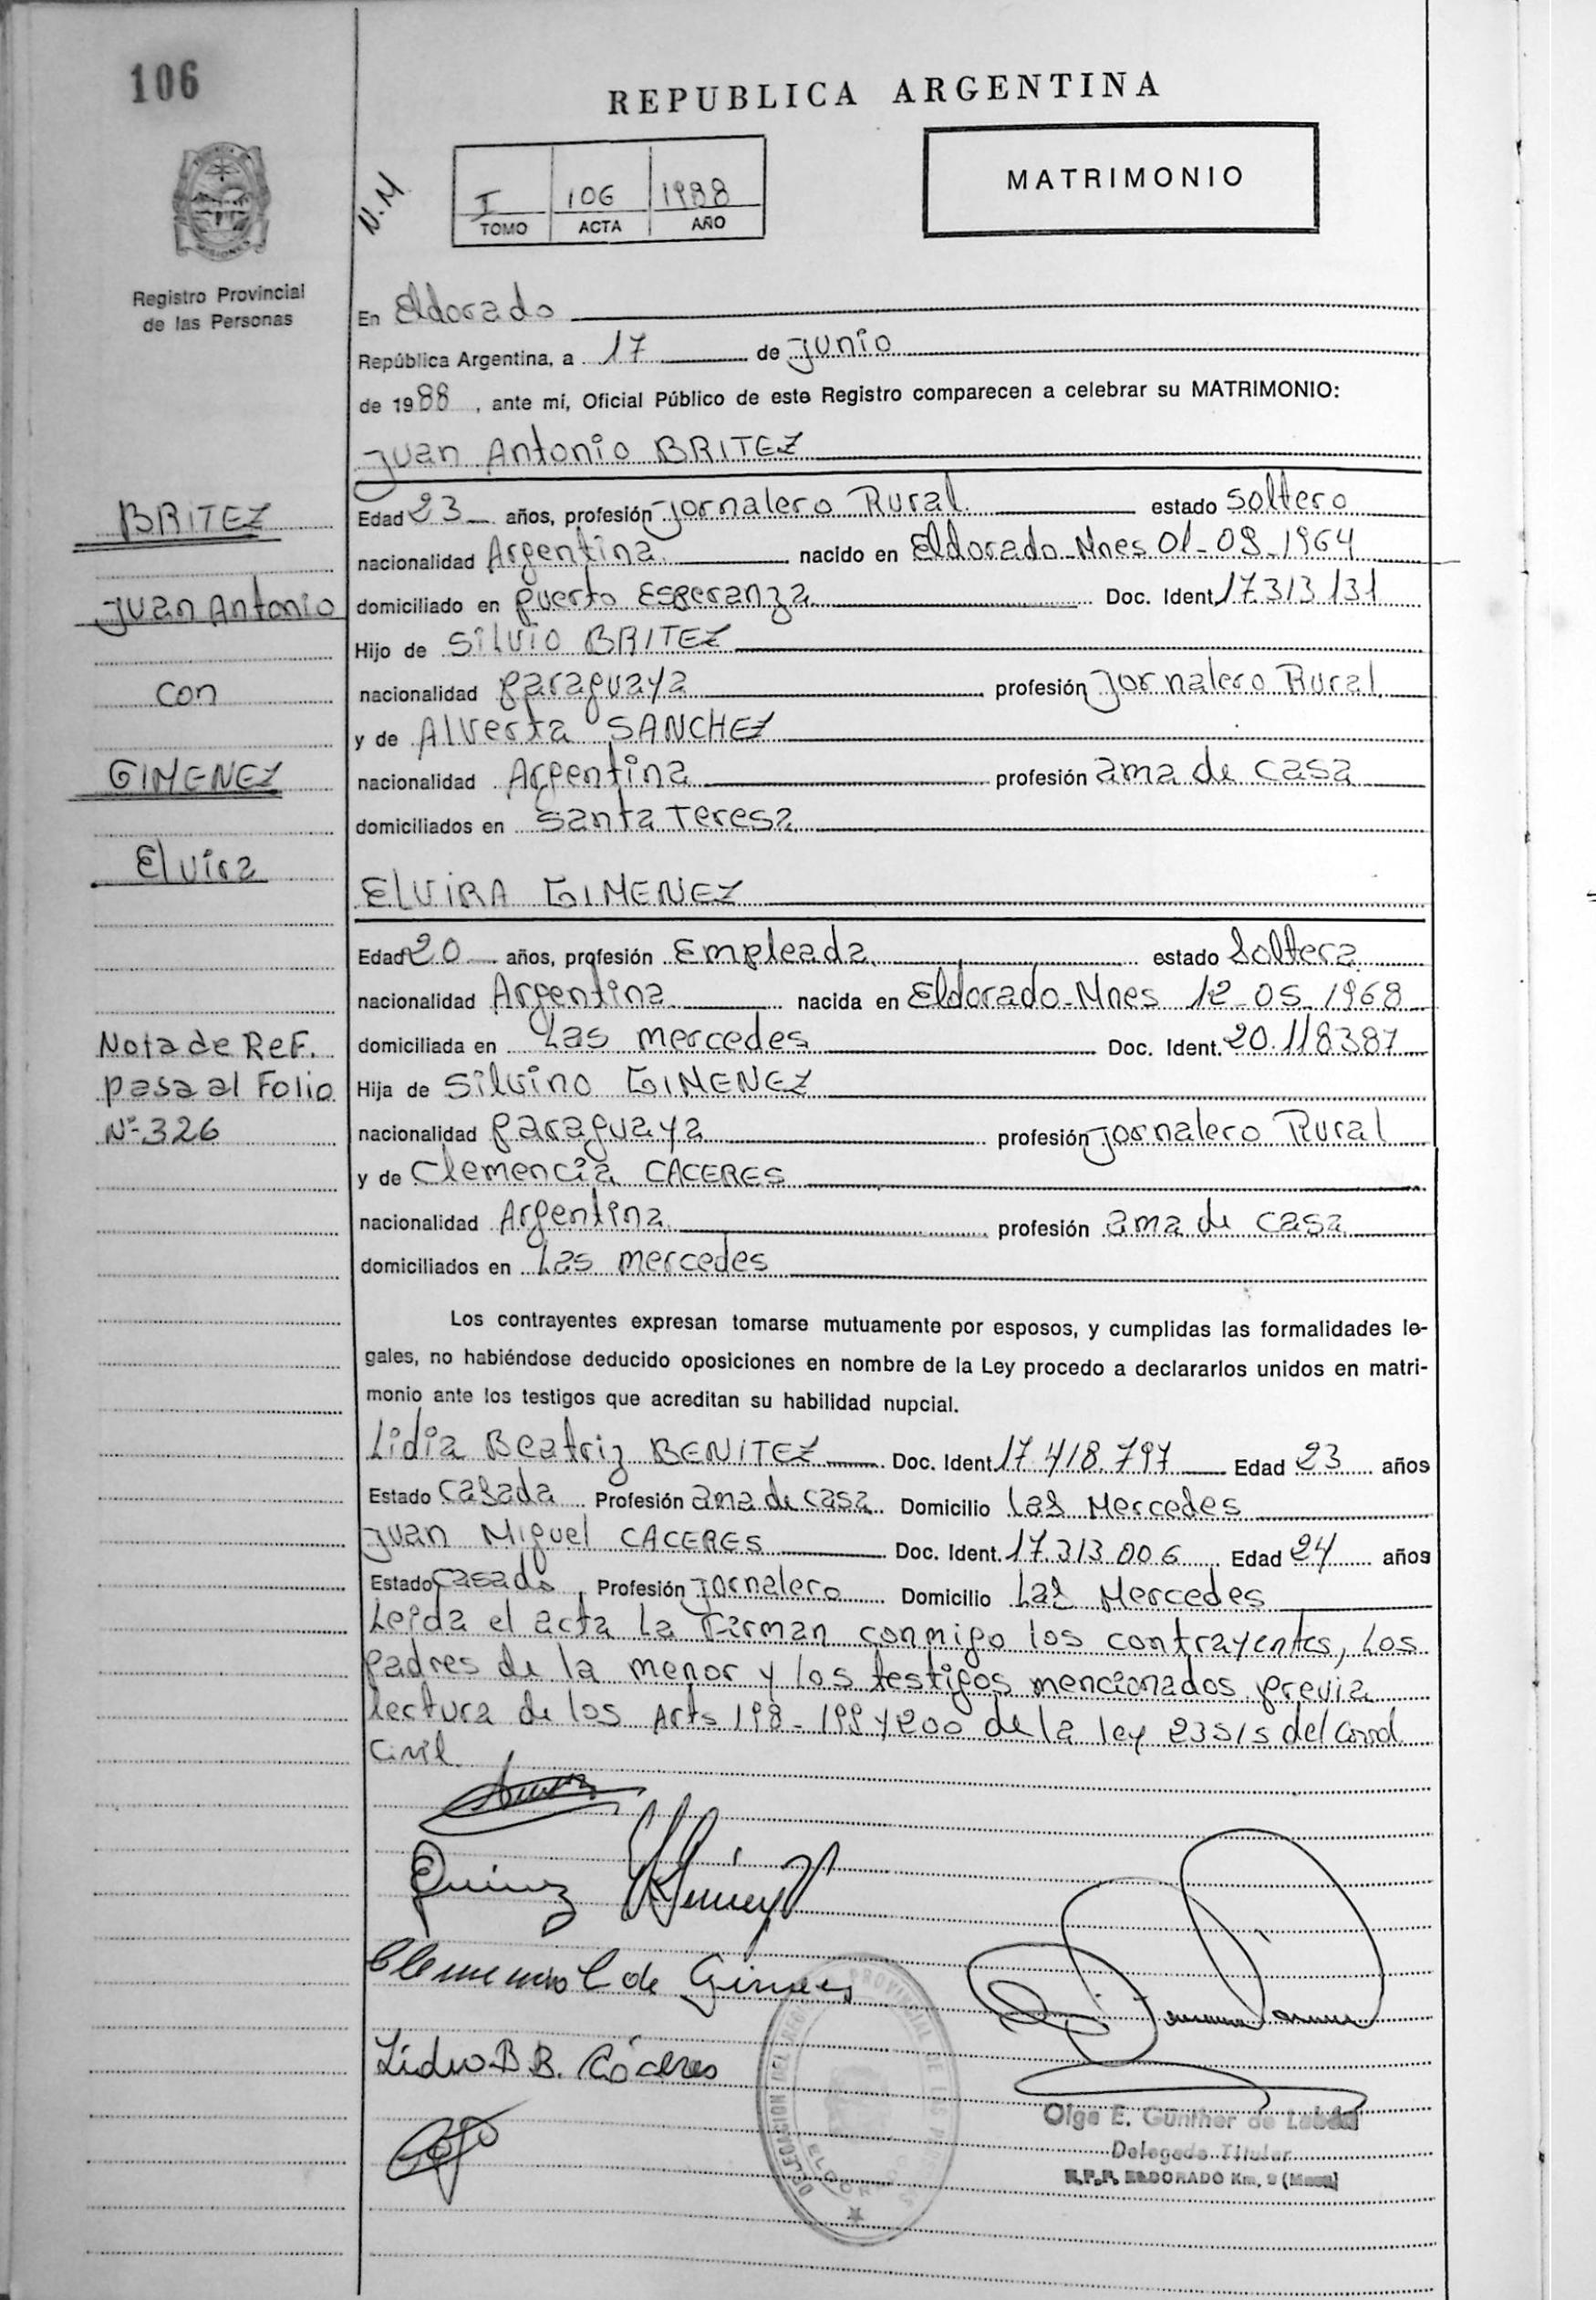 106
REPUBLICA ARGENTINA
MATRIMONIO
N.M
I 106 1988
TOMO ACTA AÑO
MISIONES
Registro Provincial
de las Personas
En Eldorado
República Argentina, a 17 de junio
de 1988, ante mí, Oficial Público de este Registro comparecen a celebrar su MATRIMONIO:
Juan Antonio BRITEZ
Edad 23 años, profesión Jornalero Rural estado soltero
nacionalidad Argentina nacido en Eldorado-Mnes 01-09-1964
domiciliado en puerto Esperanza Doc. Ident. 17.313.131
Hijo de Silvio BRITEZ
nacionalidad paraguaya profesión Jornalero Rural
y de Alverta SANCHEZ
nacionalidad Argentina profesión ama de casa
domiciliados en Santa Teresa
ELVIRA GIMENEZ
Edad 20 años, profesión Empleada estado Soltera
nacionalidad Argentina nacida en Eldorado-Mnes 12-05-1968
domiciliada en Las mercedes Doc. Ident. 20.118387
Hija de Silvino GIMENEZ
nacionalidad paraguaya profesión jornalero Rural
y de Clemencia CACERES
nacionalidad Argentina profesión ama de casa
domiciliados en Las mercedes
Los contrayentes expresan tomarse mutuamente por esposos, y cumplidas las formalidades le-
gales, no habiéndose deducido oposiciones en nombre de la Ley procedo a declararlos unidos en matri-
monio ante los testigos que acreditan su habilidad nupcial.
Lidia Beatriz BENITEZ Doc. Ident. 17.418.797 Edad 23 años
Estado casada Profesión ama de casa Domicilio Las Mercedes
Juan Miguel CACERES Doc. Ident. 17.313.006 Edad 24 años
Estado casado Profesión jornalero Domicilio Las Mercedes
Leida el acta la Firman conmigo los contrayentes, los
padres de la menor y los testigos mencionados previa
lectura de los Arts 198-199 y 200 de la ley 23515 del Cood
Civil
BRITEZ
Juan Antonio
con
GIMENEZ
Elvira
Nota de Ref.
pasa al Folio
Nº 326
C de
Lidia B B. Cáceres
DELEGACION DEL REG PROVINCIAL DE LAS
Olga E. Günther de
Delegada Titular
R.P.P. ELDORADO Km. 9 (Mnes)